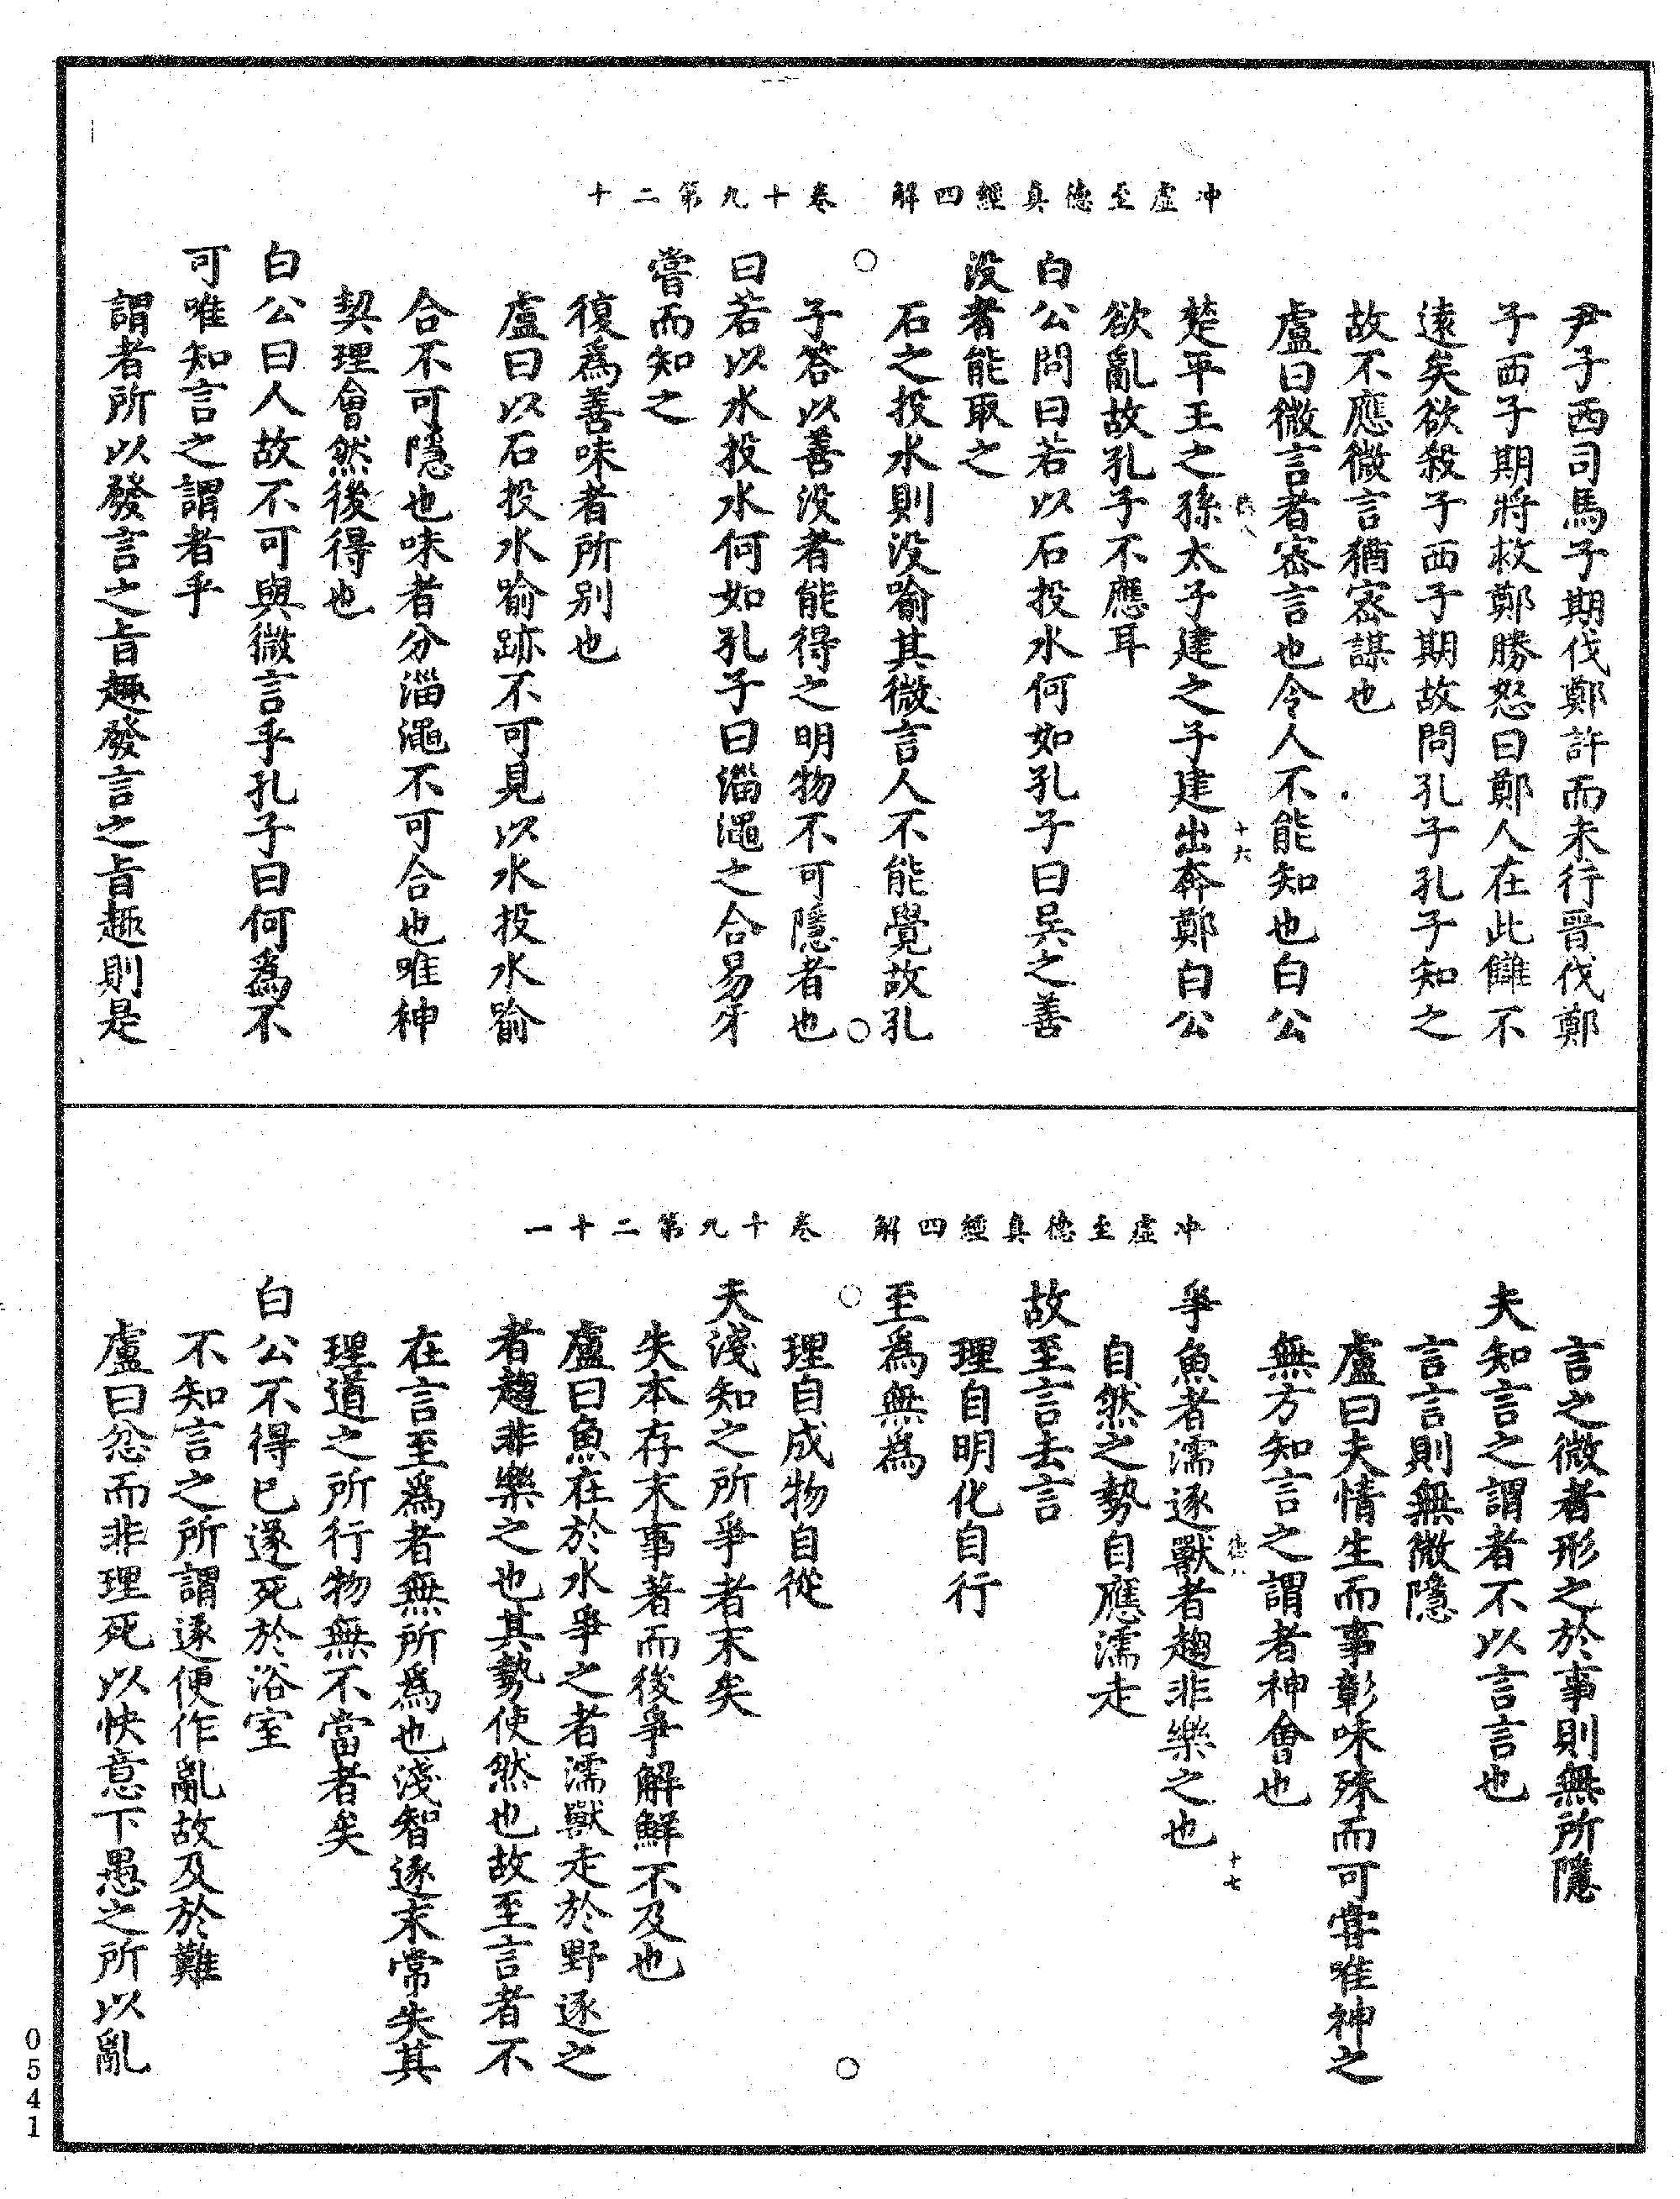 冲虛至德真經四解　卷十九第二十
尹子西司馬子期伐鄭許而未行晉伐鄭
子西子期將救鄭勝怒曰鄭人在此讎不
遠矣欲殺子西子期故問孔子孔子知之
故不應微言猶密謀也
盧曰微言者密言也令人不能知也白公
楚平王之孫太子建之子建出奔鄭白公
欲亂故孔子不應耳
白公問曰若以石投水何如孔子曰吳之善
没者能取之
石之投水則没喻其微言人不能覺故孔
子答以善没者能得之明物不可隱者也
曰若以水投水何如孔子曰淄澠之合易牙
嘗而知之
復為善味者所別也
盧曰以石投水喻跡不可見以水投水喻
合不可隱也味者分淄澠不可合也唯神
契理會然後得也
白公曰人故不可與微言乎孔子曰何為不
可唯知言之謂者乎
謂者所以發言之旨趣發言之旨趣則是
十六
冲虛至德真經四解　卷十九第二十一
言之微者形之於事則無所隱
夫知言之謂者不以言言也
言言則無微隱
盧曰夫情生而事彰味殊而可嘗唯神之
無方知言之謂者神會也
爭魚者濡逐獸者趨非樂之也
自然之勢自應濡走
故至言去言
理自明化自行
至為無為
理自成物自從
夫淺知之所爭者末矣
失本存末事著而後爭解鮮不及也
盧曰魚在於水爭之者濡獸走於野逐之
者趨非樂之也其勢使然也故至言者不
在言至為者無所為也淺智逐末常失其
理道之所行物無不當者矣
白公不得已遂死於浴室
不知言之所謂遂便作亂故及於難
盧曰忿而非理死以快意下愚之所以亂
十七
0541